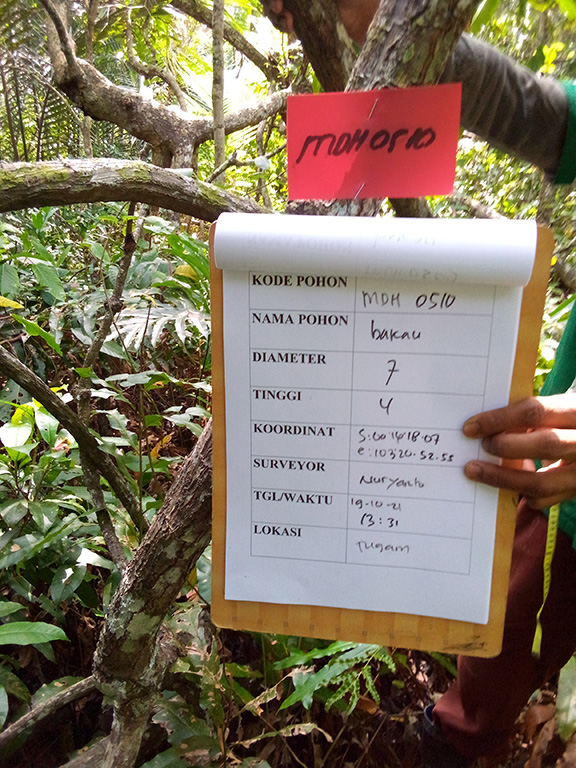 MDH 0510
KODE POHON MDH 0510
NAMA POHON bakau
DIAMETER 7
TINGGI 4
KOORDINAT S:00 14 18.07
e:103 20.52.55
SURVEYOR Nuryanto
TGL/WAKTU 19-10-21
13:31
LOKASI Tugam